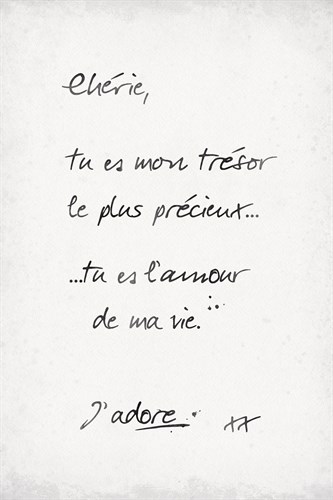 Chérie,
tu es mon trésor
le plus précieux...
...tu es l'amour
de ma vie.
J'adore.
xx